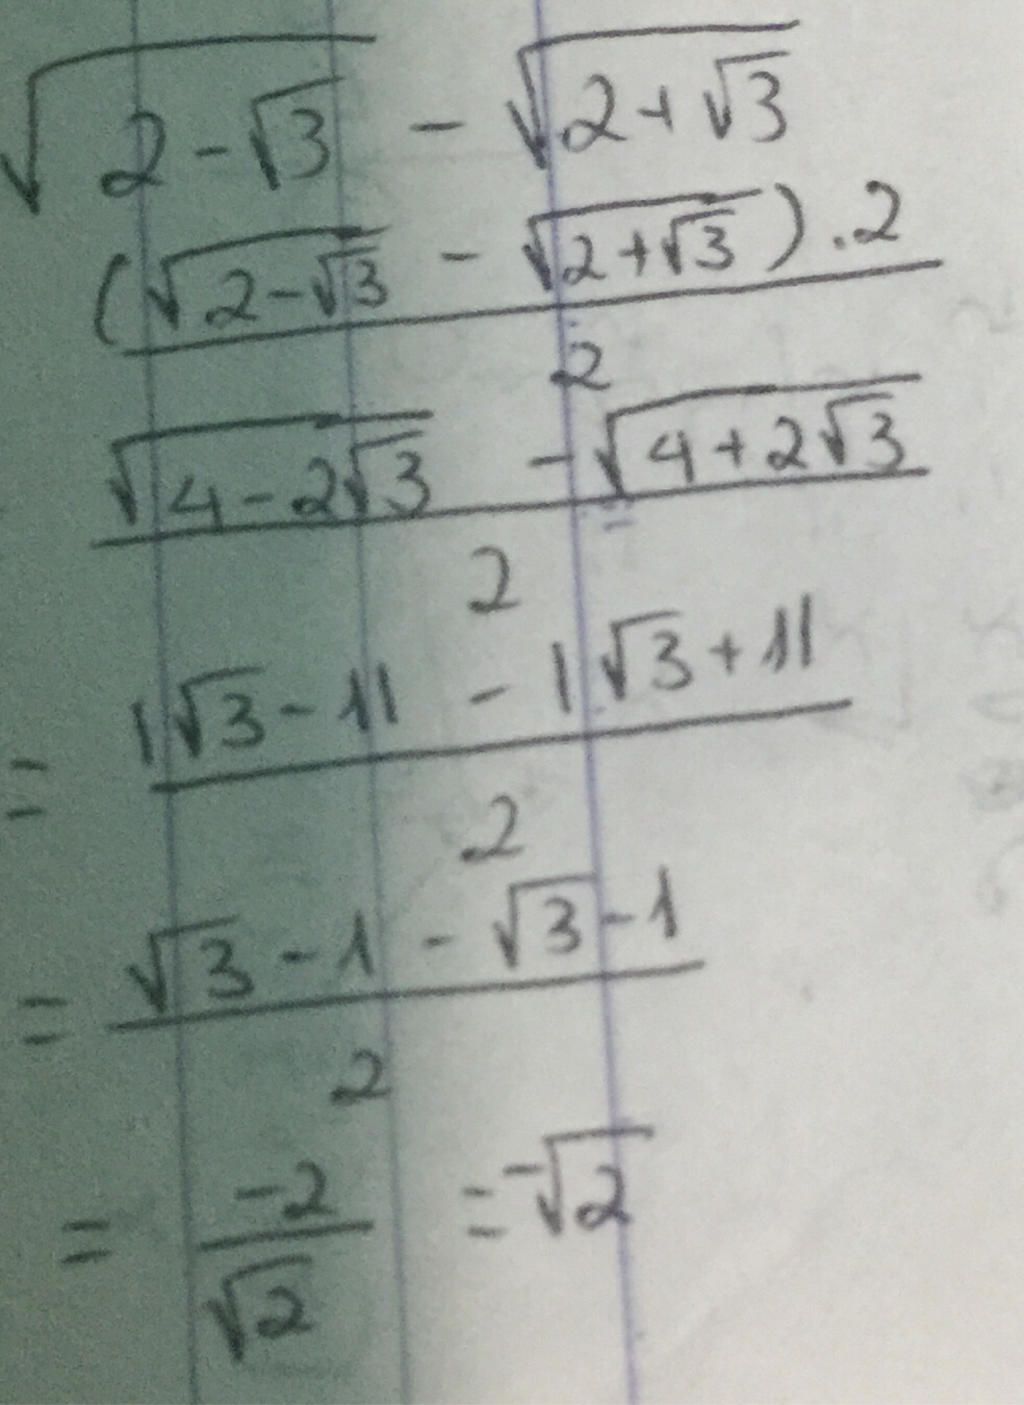 √(2-√3) - √(2+√3)
(√(2-√3) - √(2+√3)).2 / 2
√(4-2√3) - √(4+2√3) / 2
= |√3-1| - |√3+1| / 2
= √3-1-√3-1 / 2
= -2/√2 = -√2